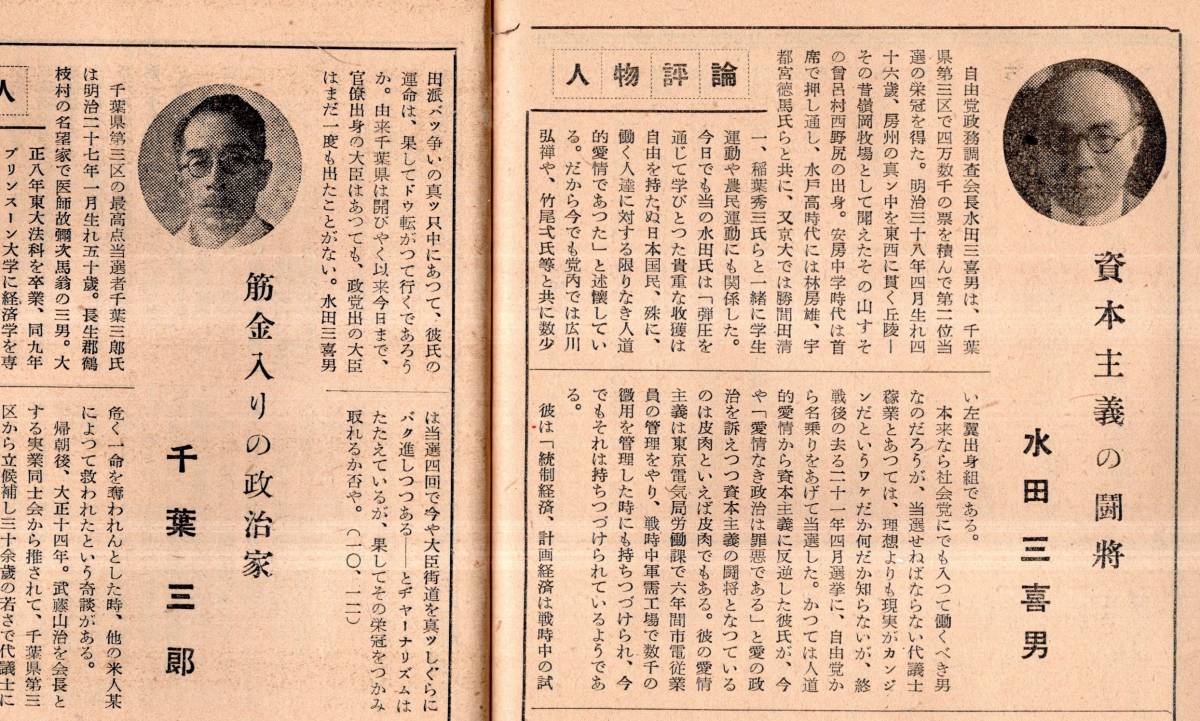 人物評論
資本主義の闘將
水田三喜男
自由党政務調査会長水田三喜男は、千葉
県第三区で四万数千の票を積んで第二位当
選の栄冠を得た。明治三十八年四月生れ四
十六歳、房州の真ン中を東西に貫く丘陵―
その昔嶺岡牧場として聞えたその山すそ
の曾呂村西野尻の出身。安房中学時代は首
席で押し通し、水戸高時代には林房雄、宇
都宮徳馬氏らと共に、又京大では勝間田清
一、稲葉秀三氏らと一緒に学生
運動や農民運動にも関係した。
今日でも当の水田氏は「弾圧を
通じて学びとつた貴重な収獲は
自由を持たぬ日本国民、殊に、
働く人達に対する限りなき人道
的愛情であつた」と述懐してい
る。だから今でも党内では広川
弘禅や、竹尾弌氏等と共に数少
い左翼出身組である。
本来なら社会党にでも入つて働くべき男
なのだろうが、当選せねばならない代議士
稼業とあつては、理想よりも現実がカンジ
ンだというワケだか何だか知らないが、終
戦後の去る二十一年四月選挙に、自由党か
ら名乗りをあげて当選した。かつては人道
的愛情から資本主義に反逆した彼氏が、今
や「愛情なき政治は罪悪である」と愛の政
治を訴えつつ資本主義の闘将となつている
のは皮肉といえば皮肉でもある。彼の愛情
主義は東京電気局労働課で六年間市電従業
員の管理をやり、戦時中軍需工場で数千の
徴用を管理した時にも持ちつづけられ、今
でもそれは持ちつづけられているようであ
る。
彼は「統制経済、計画経済は戦時中の試
田派バツ争いの真ツ只中にあつて、彼氏の
運命は、果してドウ転がつて行くであろう
か。由来千葉県は開びやく以来今日まで、
官僚出身の大臣はあつても、政党出の大臣
はまだ一度も出たことがない。水田三喜男
は当選四回で今や大臣街道を真ツしぐらに
バク進しつつある――とヂャーナリズムは
たたえているが、果してその栄冠をつかみ
取れるか否や。(一〇、一二)
筋金入りの政治家
千葉三郎
人
千葉県第三区の最高点当選者千葉三郎氏
は明治二十七年一月生れ五十歳。長生郡鶴
枝村の名望家で医師故彌次馬翁の三男。大
正八年東大法科を卒業、同九年
プリンスーン大学に経済学を専
危く一命を奪われんとした時、他の米人某
によつて救われたという奇談がある。
帰朝後、大正十四年。武藤山治を会長と
する実業同士会から推されて、千葉県第三
区から立候補し三十余歳の若さで代議士に